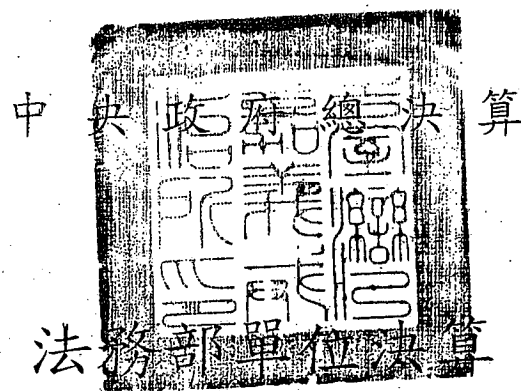 中央政府總決算
法務部單位決算